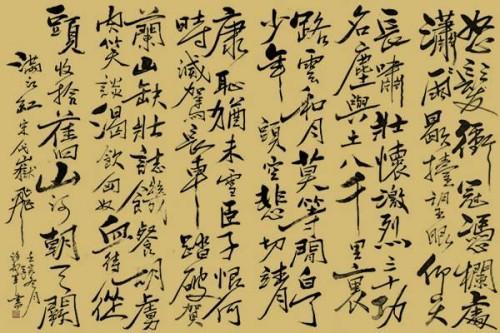 怒髮衝冠馮欄處
瀟雨歇擡望眼仰天
長嘯壯懷激烈三十功
名塵與土八千里裏
路雲和月莫等閒白了
少年頭空悲切靖
康恥猶未雪臣子恨何
時滅駕長車踏破賀
蘭山缺壯誌饑餐胡虜
肉笑談渴飲匈奴血待從
頭收拾舊山河朝天闕
滿江紅宋代嶽飛